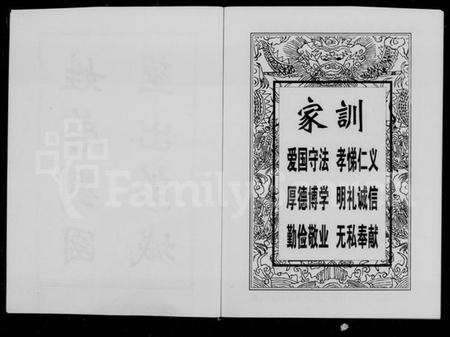 家訓
爱国守法 孝悌仁义
厚德博学 明礼诚信
勤俭敬业 无私奉献